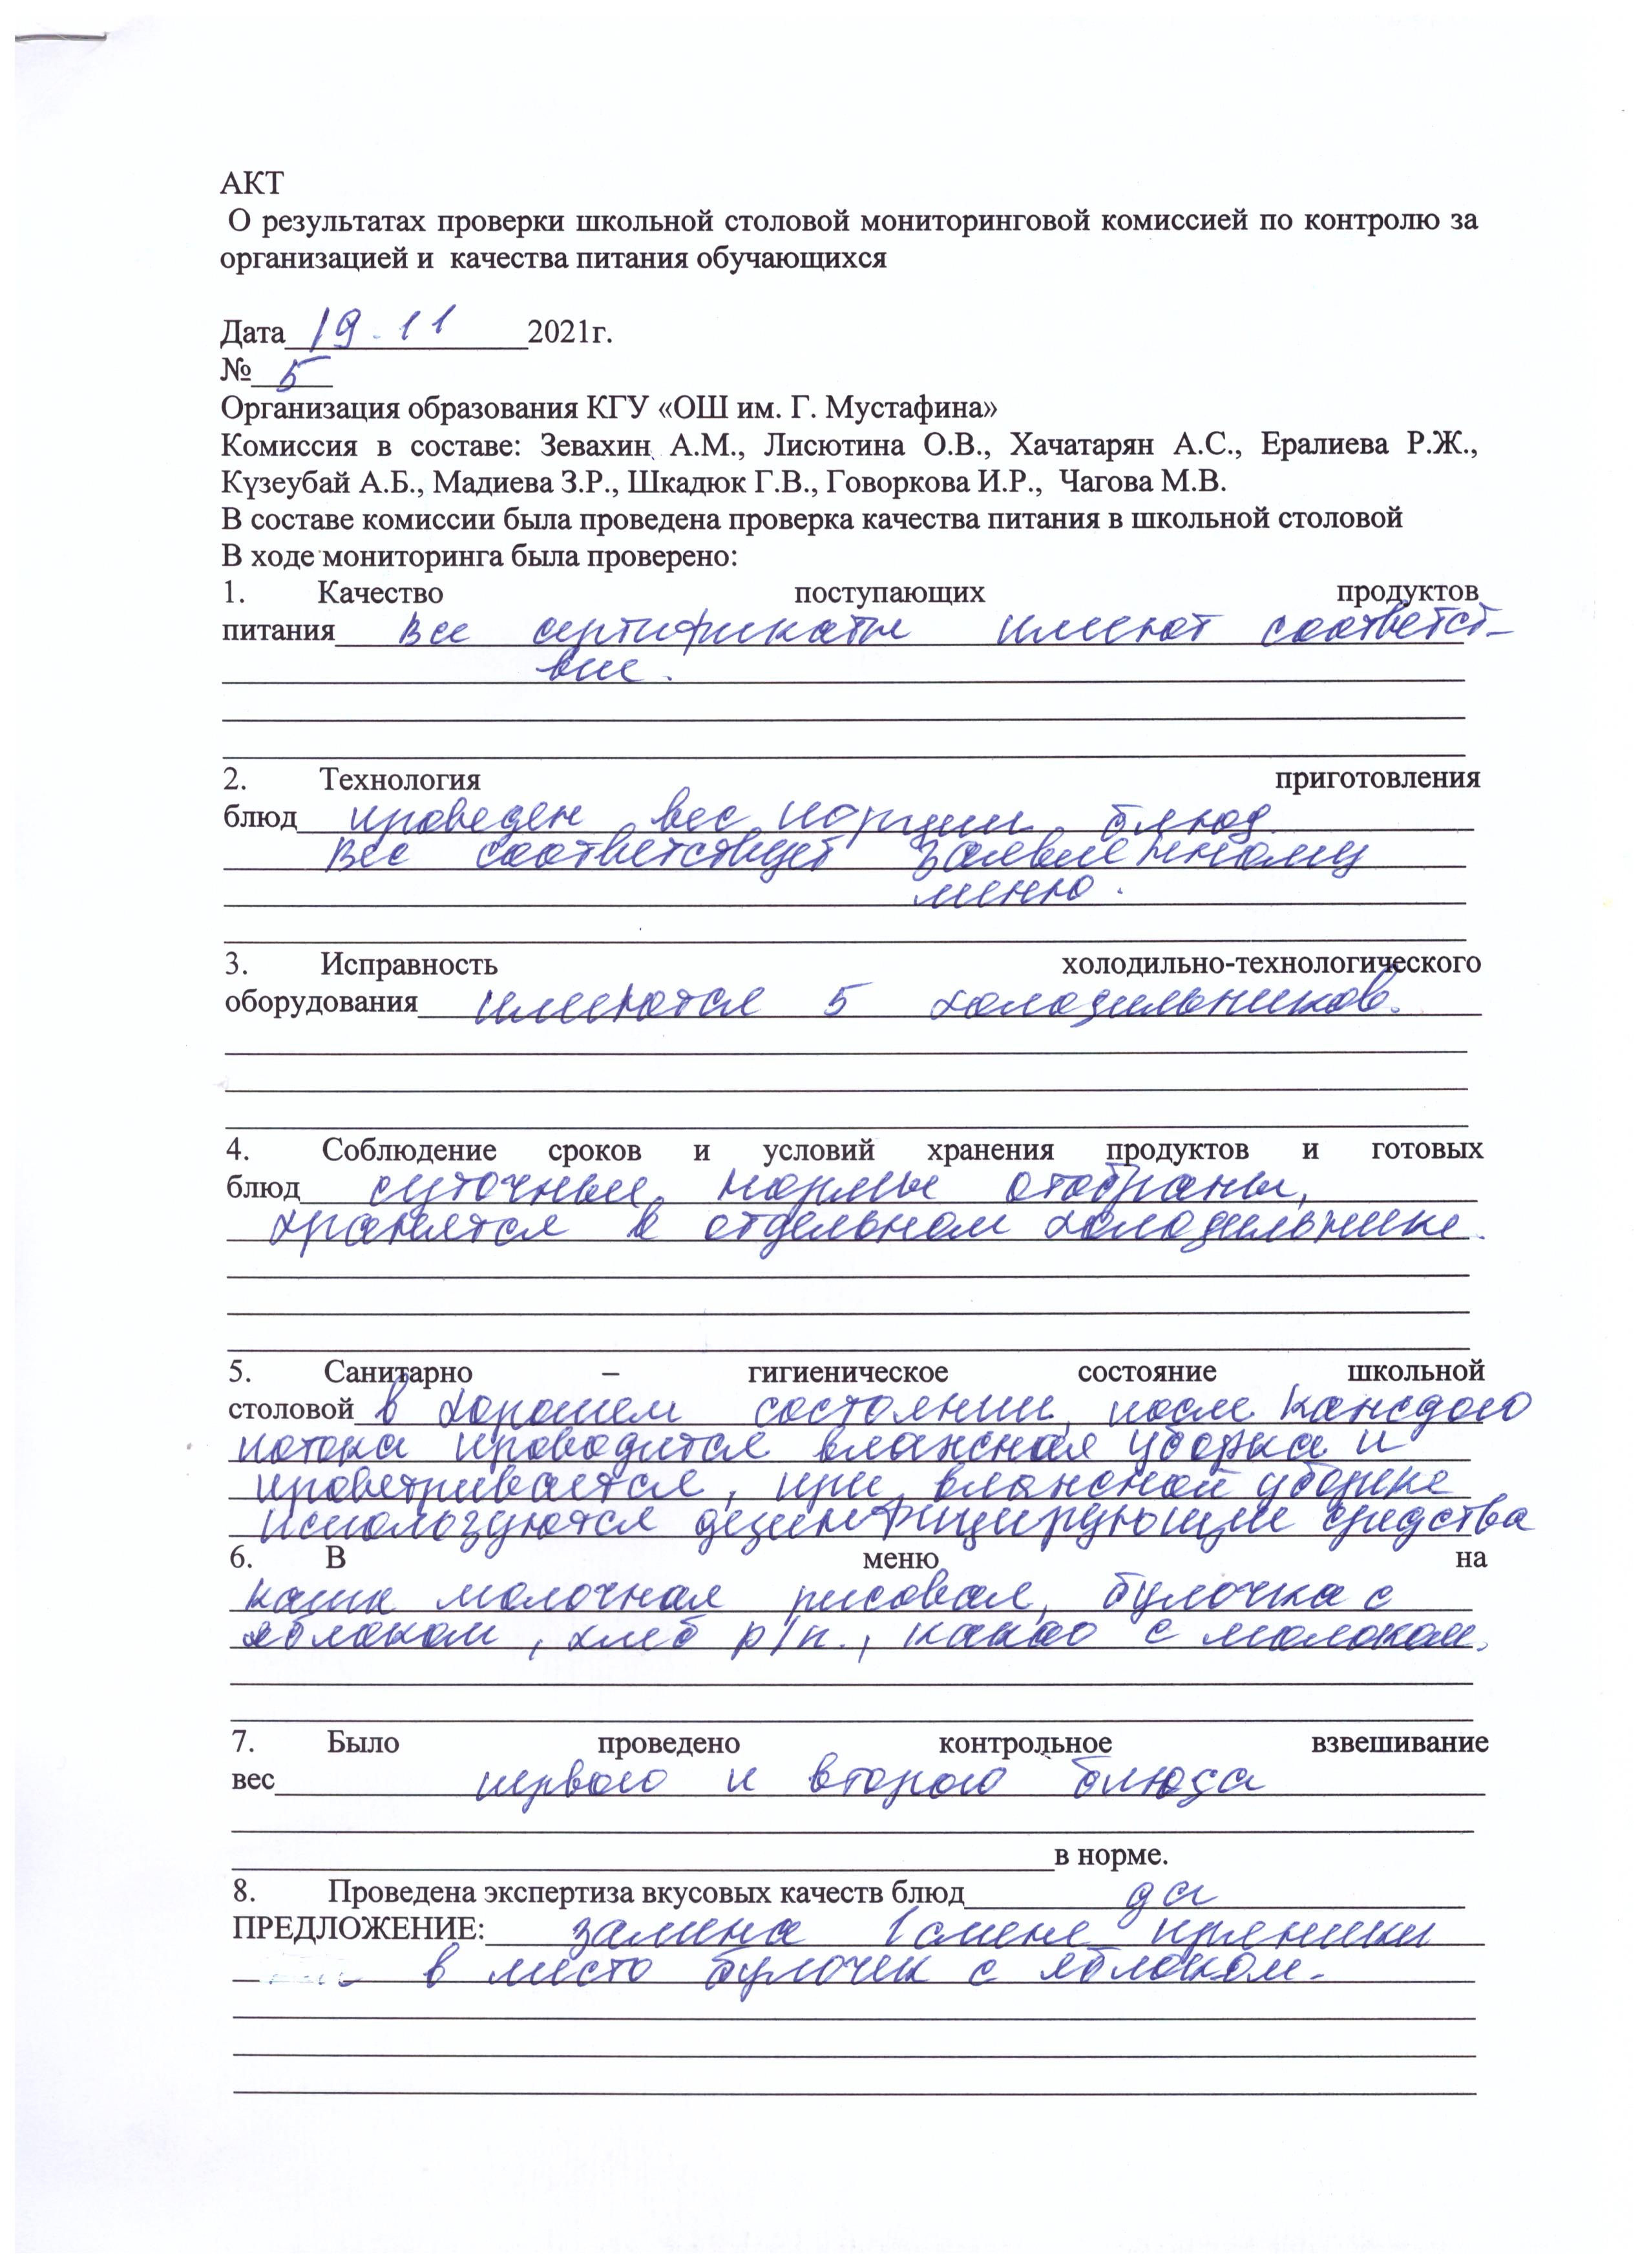 АКТ
О результатах проверки школьной столовой мониторинговой комиссией по контролю за
организацией и качества питания обучающихся
Дата 19.11 2021г.
№ 5
Организация образования КГУ «ОШ им. Г. Мустафина»
Комиссия в составе: Зевахин А.М., Лисютина О.В., Хачатарян А.С., Ералиева Р.Ж.,
Күзеубай А.Б., Мадиева З.Р., Шкадюк Г.В., Говоркова И.Р., Чагова М.В.
В составе комиссии была проведена проверка качества питания в школьной столовой
В ходе мониторинга была проверено:
1. Качество поступающих продуктов
питания все сертификаты имеют соответст-
вие.
2. Технология приготовления
блюд проведен вес порции блюд
вес соответствует заявленному
меню.
3. Исправность холодильно-технологического
оборудования имеются 5 холодильников.
4. Соблюдение сроков и условий хранения продуктов и готовых
блюд суточные нормы отобраны,
хранятся в отдельном холодильнике.
5. Санитарно – гигиеническое состояние школьной
столовой в хорошем состоянии, после каждого
потока проводится влажная уборка и
проветривается, при влажной уборке
используются дезинфицирующие средства
6. В меню на
каша молочная рисовая, булочка с
яблоком, хлеб р/п., какао с молоком.
7. Было проведено контрольное взвешивание
вес первого и второго блюда
в норме.
8. Проведена экспертиза вкусовых качеств блюд да
ПРЕДЛОЖЕНИЕ: замена 1 смене пряники
в место булочек с яблоком.